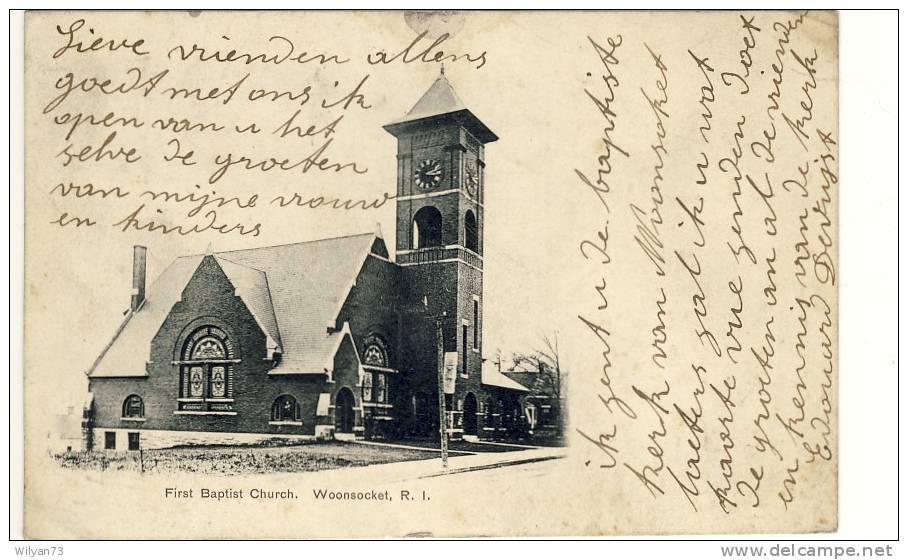 Lieve vrienden allens
goedt met ons ik
open van u het
selve de groeten
van mijne vrouw
en kinders
ik zent u de baptiste
kerk van Woonsoket
laeters zal ik u wat
kaorte vue zenden doet
de groeten an al de vrienden
en kennis van de kerk
Edouard
First Baptist Church. Woonsocket, R. I.
Wilyan73
www.delcampe.net